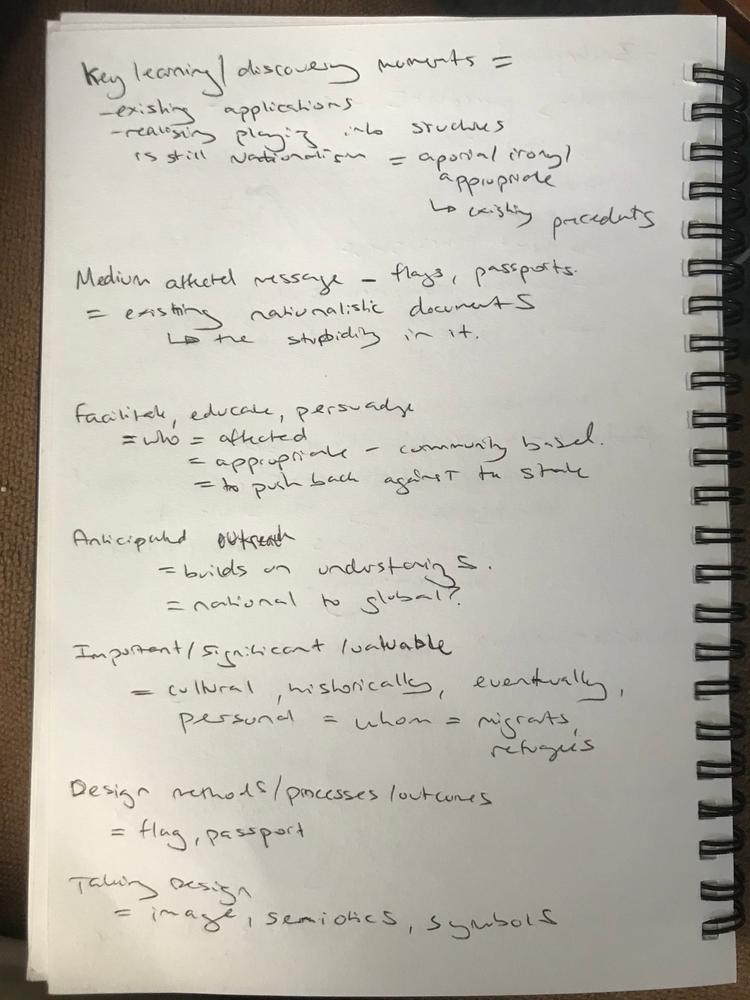 Key learning/discovery moments =
-existing applications
-realising playing into structures
is still nationalism = aporia/irony/
appropriate
↳ existing precedents
Medium affected message - flags, passports.
= existing nationalistic documents
↳ the stupidity in it.
Facilitate, educate, persuadge
= who = affected
= appropriate - community based.
= to push back against the state
Anticipated outreach
= builds on understanings.
= national to global?
Important/significant/valuable
= cultural, historically, eventually,
personal = whom = migrats,
refugees
Design methods/processes/outcomes
= flag, passport
Taking Design
= image, semiotics, symbols